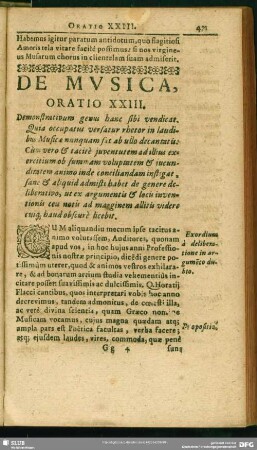 ORATIO XXIII. 471
Habemus igitur paratum antidotum, quo flagitiosi
Amoris tela vitare facilè possimus: si nos virgineus
Musarum chorus in clientelam suam admiserit.
DE MVSICA,
ORATIO XXIII.
Demonstrativum genus hanc sibi vendicat.
Quia occupatus versatur rhetor in laudibus
Musicæ nunquam sat ab ullo decantatis.
Cum vero & tacitè juventutem ad illius exercitium
ob summam voluptatem & jucunditatem
animo inde conciliandam instigat,
sanè & aliquid admisti habet de genere deliberativo,
ut ex argumentis & locis inventionis
ceu notis ad marginem allitis videre
cuiq; haud obscurè licebit.
CUM aliquandiu mecum ipse tacitus animo
volutassem, Auditores, quonam
apud vos, in hoc hujus anni Professionis
nostræ principio, dicendi genere potissimùm
uterer, quod & animos vestros exhilarare,
& ad bonarum artium studia vehementiùs incitare
posset: suavissimis ac dulcissimis Q. Horatij
Flacci cantibus, quos interpretari vobis hoc anno
decrevimus, tandem admonitus, de cœlesti illa,
ac verè divina scientia, quam Græco nomine
Musicam vocamus, cujus magna quædam atq;
ampla pars est Poëtica facultas, verba facere;
atq; ejusdem laudes, vires, commoda, quæ penè
Gg 4 sunt
Exordium
à deliberatione
in argumēto
dubio.
Propositio.
SLUB
DFG